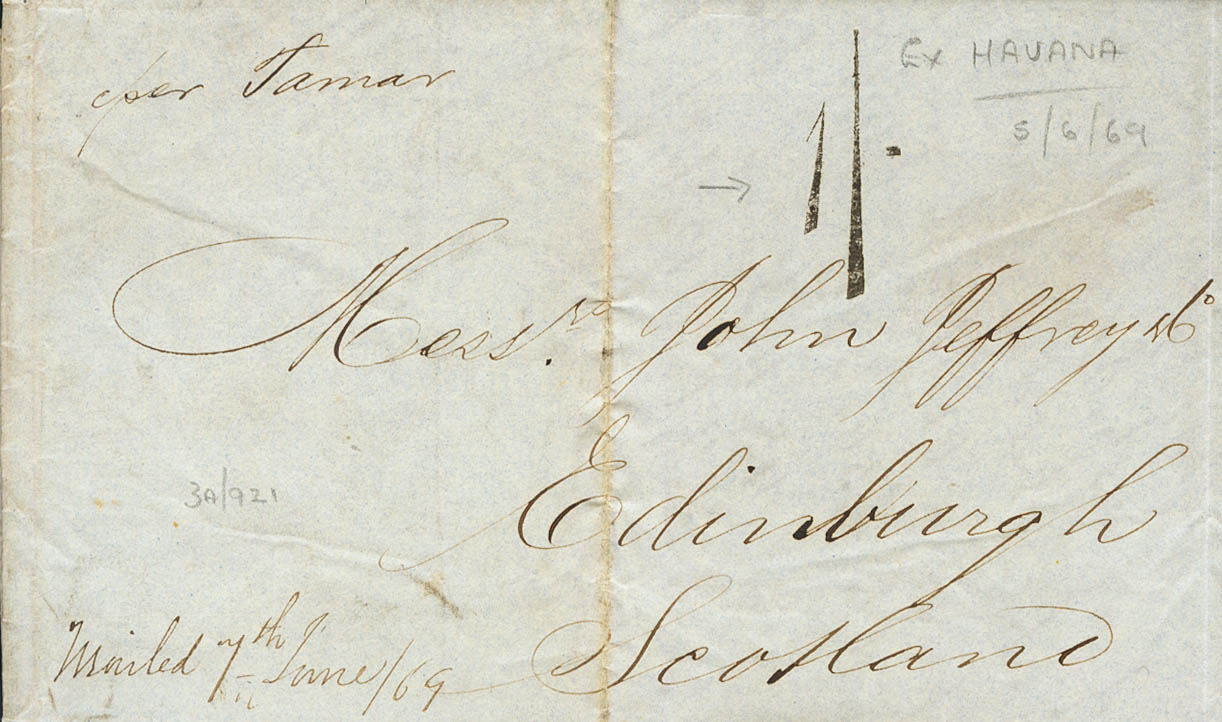 per Tamar
Ex HAVANA
5/6/69
1/.
→
Messrs. John Jeffrey & Co
Edinburgh
Scotland
3A/921
Mailed 7th June/69